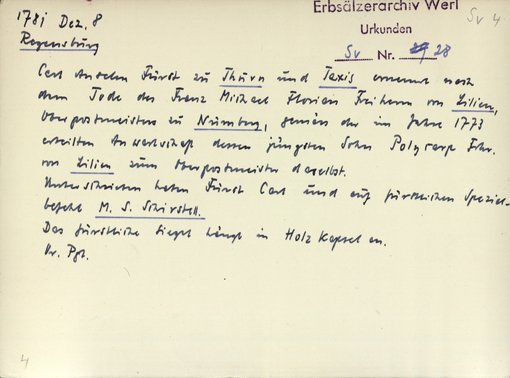 Erbsälzerarchiv Werl
Urkunden
Sv Nr. 28
Sv 4
1781 Dez. 8
Regensburg
Carl Anselm Fürst zu Thurn und Taxis ernennt nach
dem Tode des Franz Michael Florian Freiherrn von Lilien,
Oberpostmeisters zu Nürnberg, gemäss der im Jahre 1773
erteilten Anwartschaft dessen jüngsten Sohn Polycarp Frhr.
von Lilien zum Oberpostmeister daselbst.
Unterschrieben haben Fürst Carl und auf fürstlichen Spezial-
befehl M. S. Schirstell.
Das fürstliche Siegel hängt in Holzkapsel an.
Or. Pgt.
4